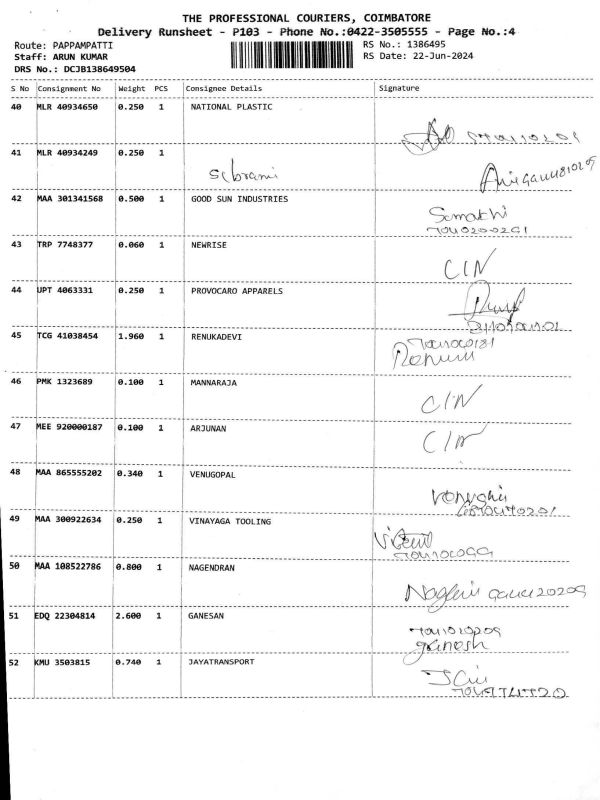 THE PROFESSIONAL COURIERS, COIMBATORE
Delivery Runsheet - P103 - Phone No.:0422-3505555 - Page No.:4
Route: PAPPAMPATTI RS No.: 1386495
Staff: ARUN KUMAR RS Date: 22-Jun-2024
DRS No.: DCJB138649504
S No Consignment No Weight PCS Consignee Details Signature
40 MLR 40934650 0.250 1 NATIONAL PLASTIC
41 MLR 40934249 0.250 1
42 MAA 301341568 0.500 1 GOOD SUN INDUSTRIES
Sumathi
43 TRP 7748377 0.060 1 NEWRISE
CIN
44 UPT 4063331 0.250 1 PROVOCARO APPARELS
45 TCG 41038454 1.960 1 RENUKADEVI
46 PMK 1323689 0.100 1 MANNARAJA
CIN
47 MEE 920000187 0.100 1 ARJUNAN
CIN
48 MAA 865555202 0.340 1 VENUGOPAL
49 MAA 300922634 0.250 1 VINAYAGA TOOLING
50 MAA 108522786 0.800 1 NAGENDRAN
51 EDQ 22304814 2.600 1 GANESAN
ganesh
52 KMU 3503815 0.740 1 JAYATRANSPORT